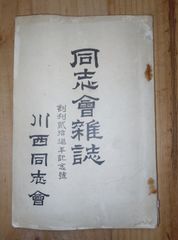 同志會雜誌
創刊貳拾週年記念號
川西同志會